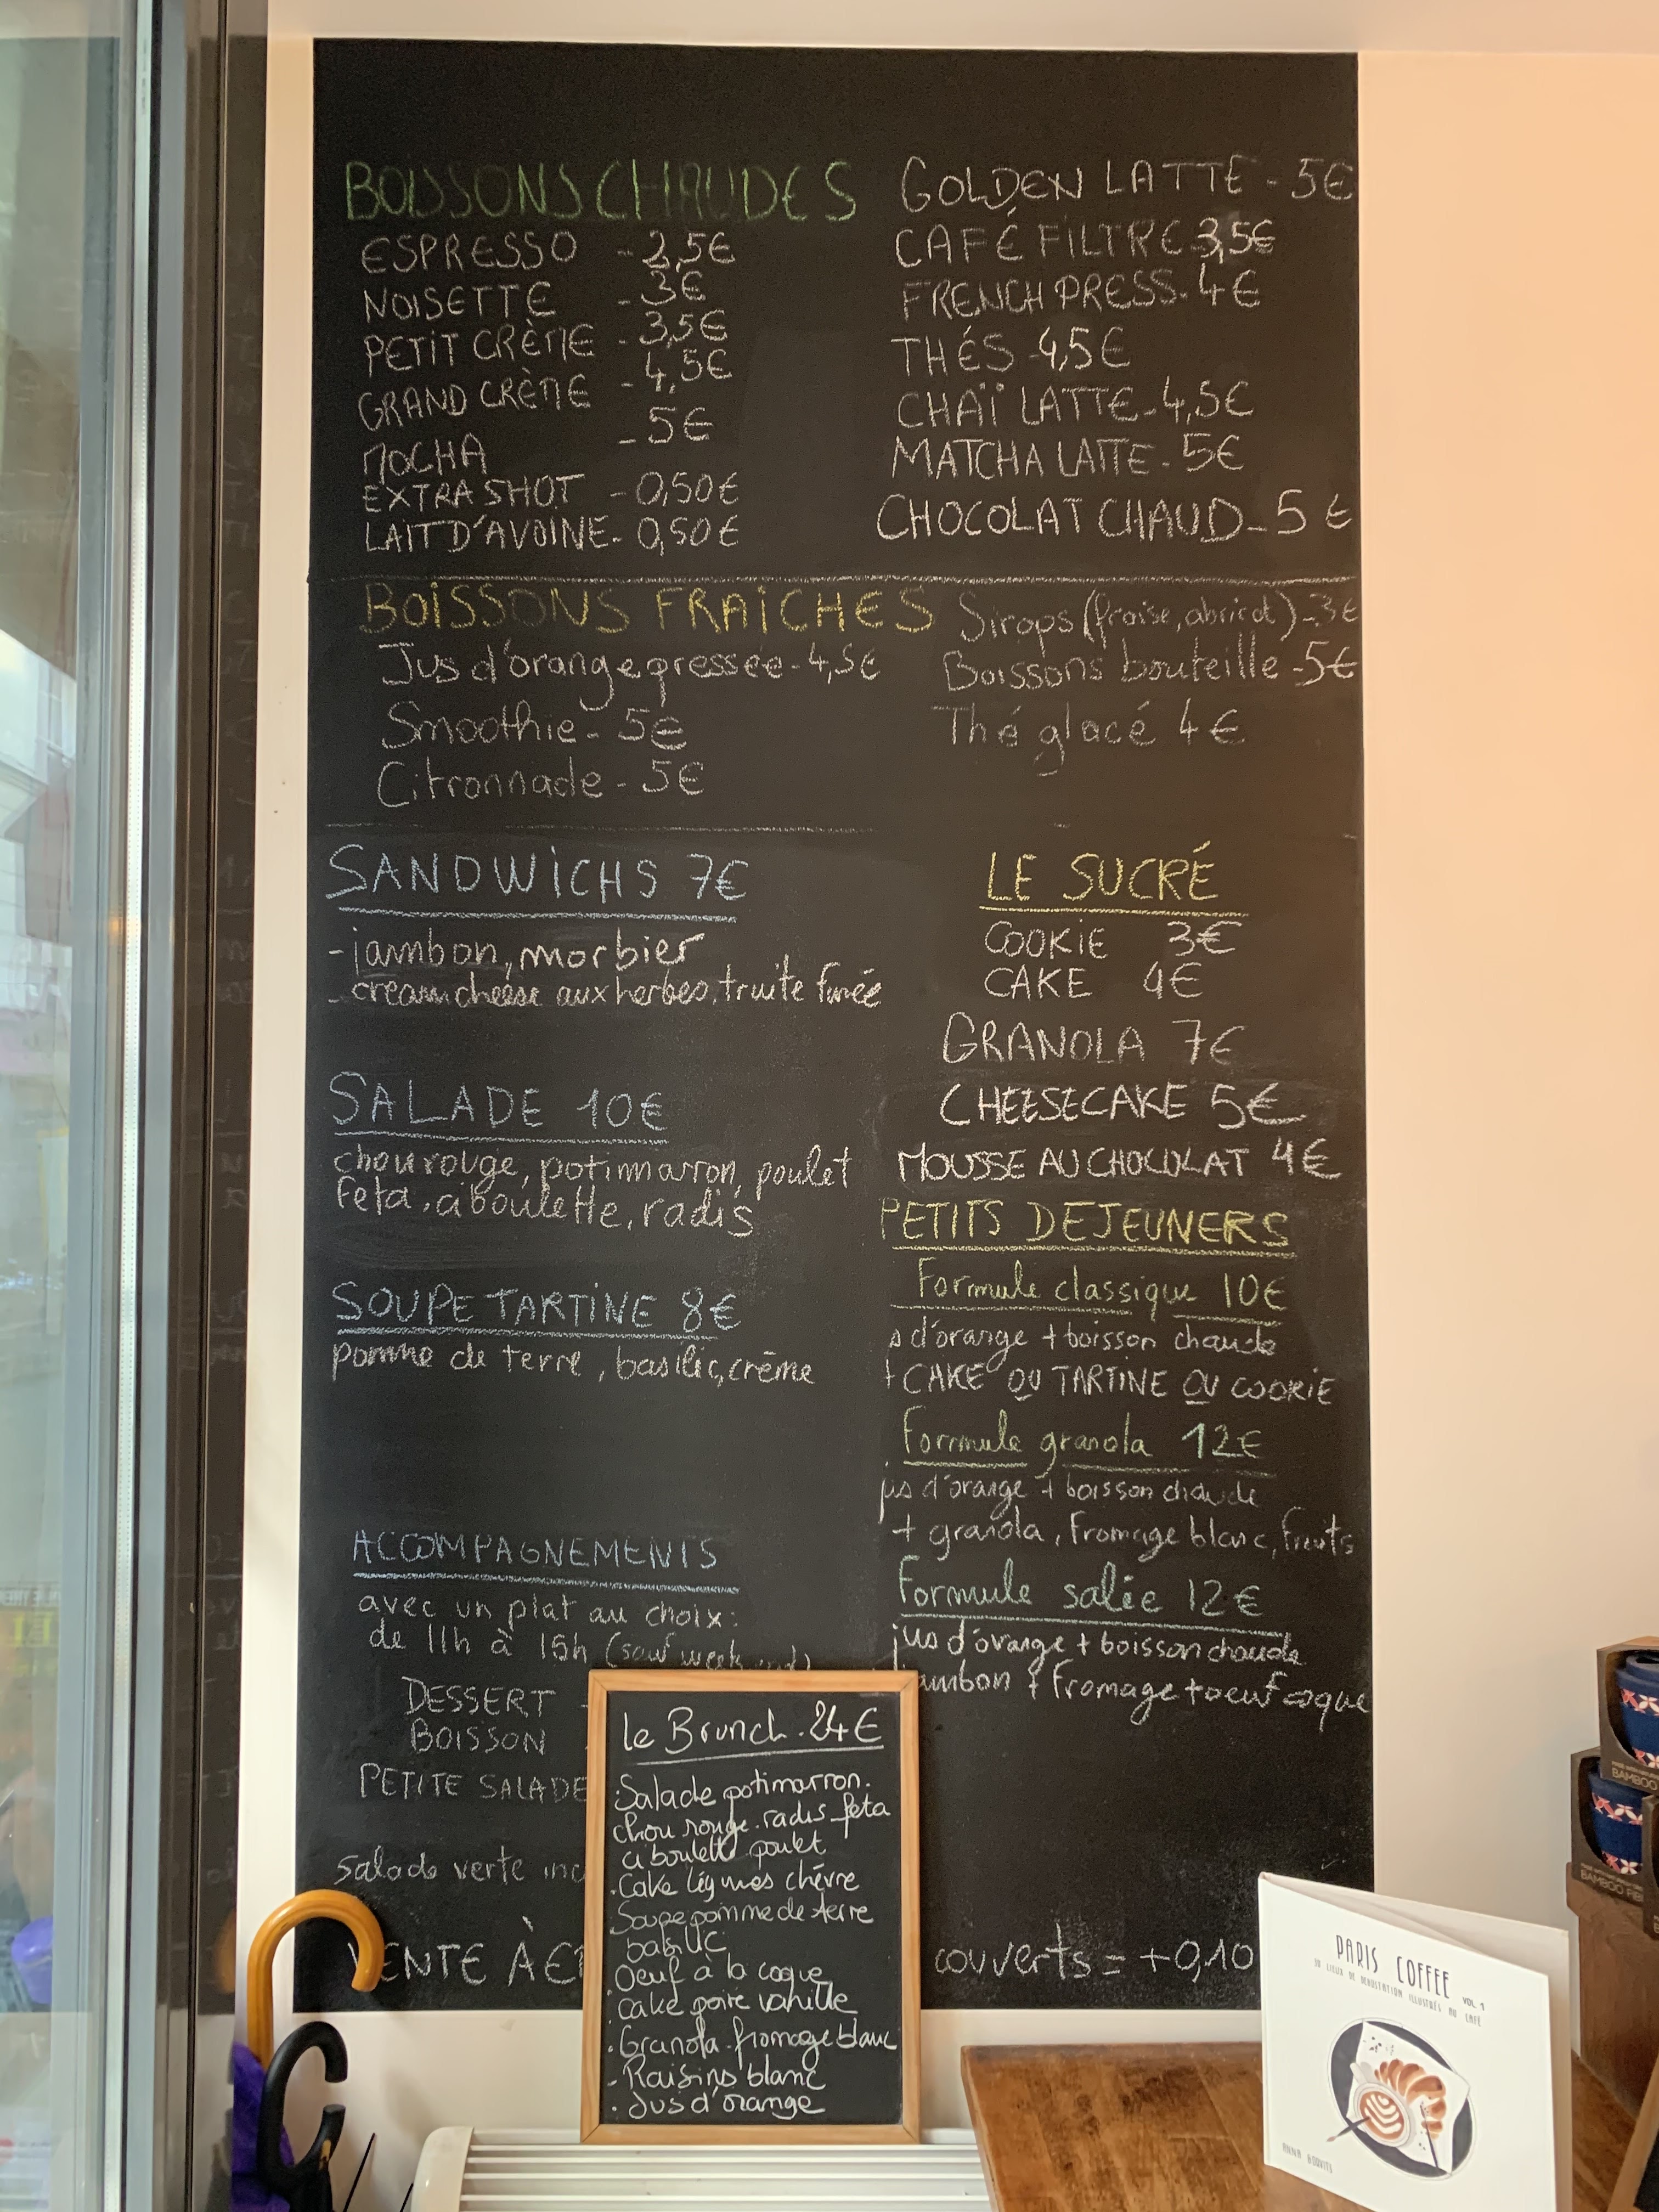 BOISSONS CHAUDES
ESPRESSO - 2,5€
NOISETTE - 3€
PETIT CRÈME - 3,5€
GRAND CRÈME - 4,5€
MOCHA - 5€
EXTRA SHOT - 0,50€
LAIT D'AVOINE - 0,50€
GOLDEN LATTE - 5€
CAFÉ FILTRE 3,5€
FRENCH PRESS - 4€
THÉS - 4,5€
CHAÏ LATTE - 4,5€
MATCHA LATTE - 5€
CHOCOLAT CHAUD - 5€
BOISSONS FRAICHES
Jus d'orange pressée - 4,5€
Smoothie - 5€
Citronnade - 5€
Sirops (fraise, abricot) - 3€
Boissons bouteille - 5€
Thé glacé 4€
SANDWICHS 7€
- jambon, morbier
- creamcheese aux herbes, truite fumée
SALADE 10€
chou rouge, potimarron, poulet
feta, ciboulette, radis
SOUPE TARTINE 8€
pomme de terre, basilic, crème
ACCOMPAGNEMENTS
avec un plat au choix:
de 11h à 15h (sauf week end)
DESSERT -
BOISSON
PETITE SALADE
salade verte inc
VENTE À E
couverts = +0,10
LE SUCRÉ
COOKIE 3€
CAKE 4€
GRANOLA 7€
CHEESECAKE 5€
MOUSSE AU CHOCOLAT 4€
PETITS DEJEUNERS
Formule classique 10€
s d'orange + boisson chaude
+ CAKE OU TARTINE OU COOKIE
Formule granola 12€
jus d'orange + boisson chaude
+ granola, fromage blanc, fruits
Formule salée 12€
jus d'orange + boisson chaude
ambon + fromage + oeuf coque
le Brunch - 24€
Salade potimarron.
chou rouge. radis feta
ciboulette poulet
. Cake légumes chèvre
Soupe pomme de terre
basilic
Oeuf à la coque
. cake poire vanille
. Granola fromage blanc
- Raisins blanc
. Jus d'orange
PARIS COFFEE
30 LIEUX DE DÉGUSTATION ILLUSTRÉS AU CAFÉ
VOL. 1
BAMBOO
BAMBOO FIB